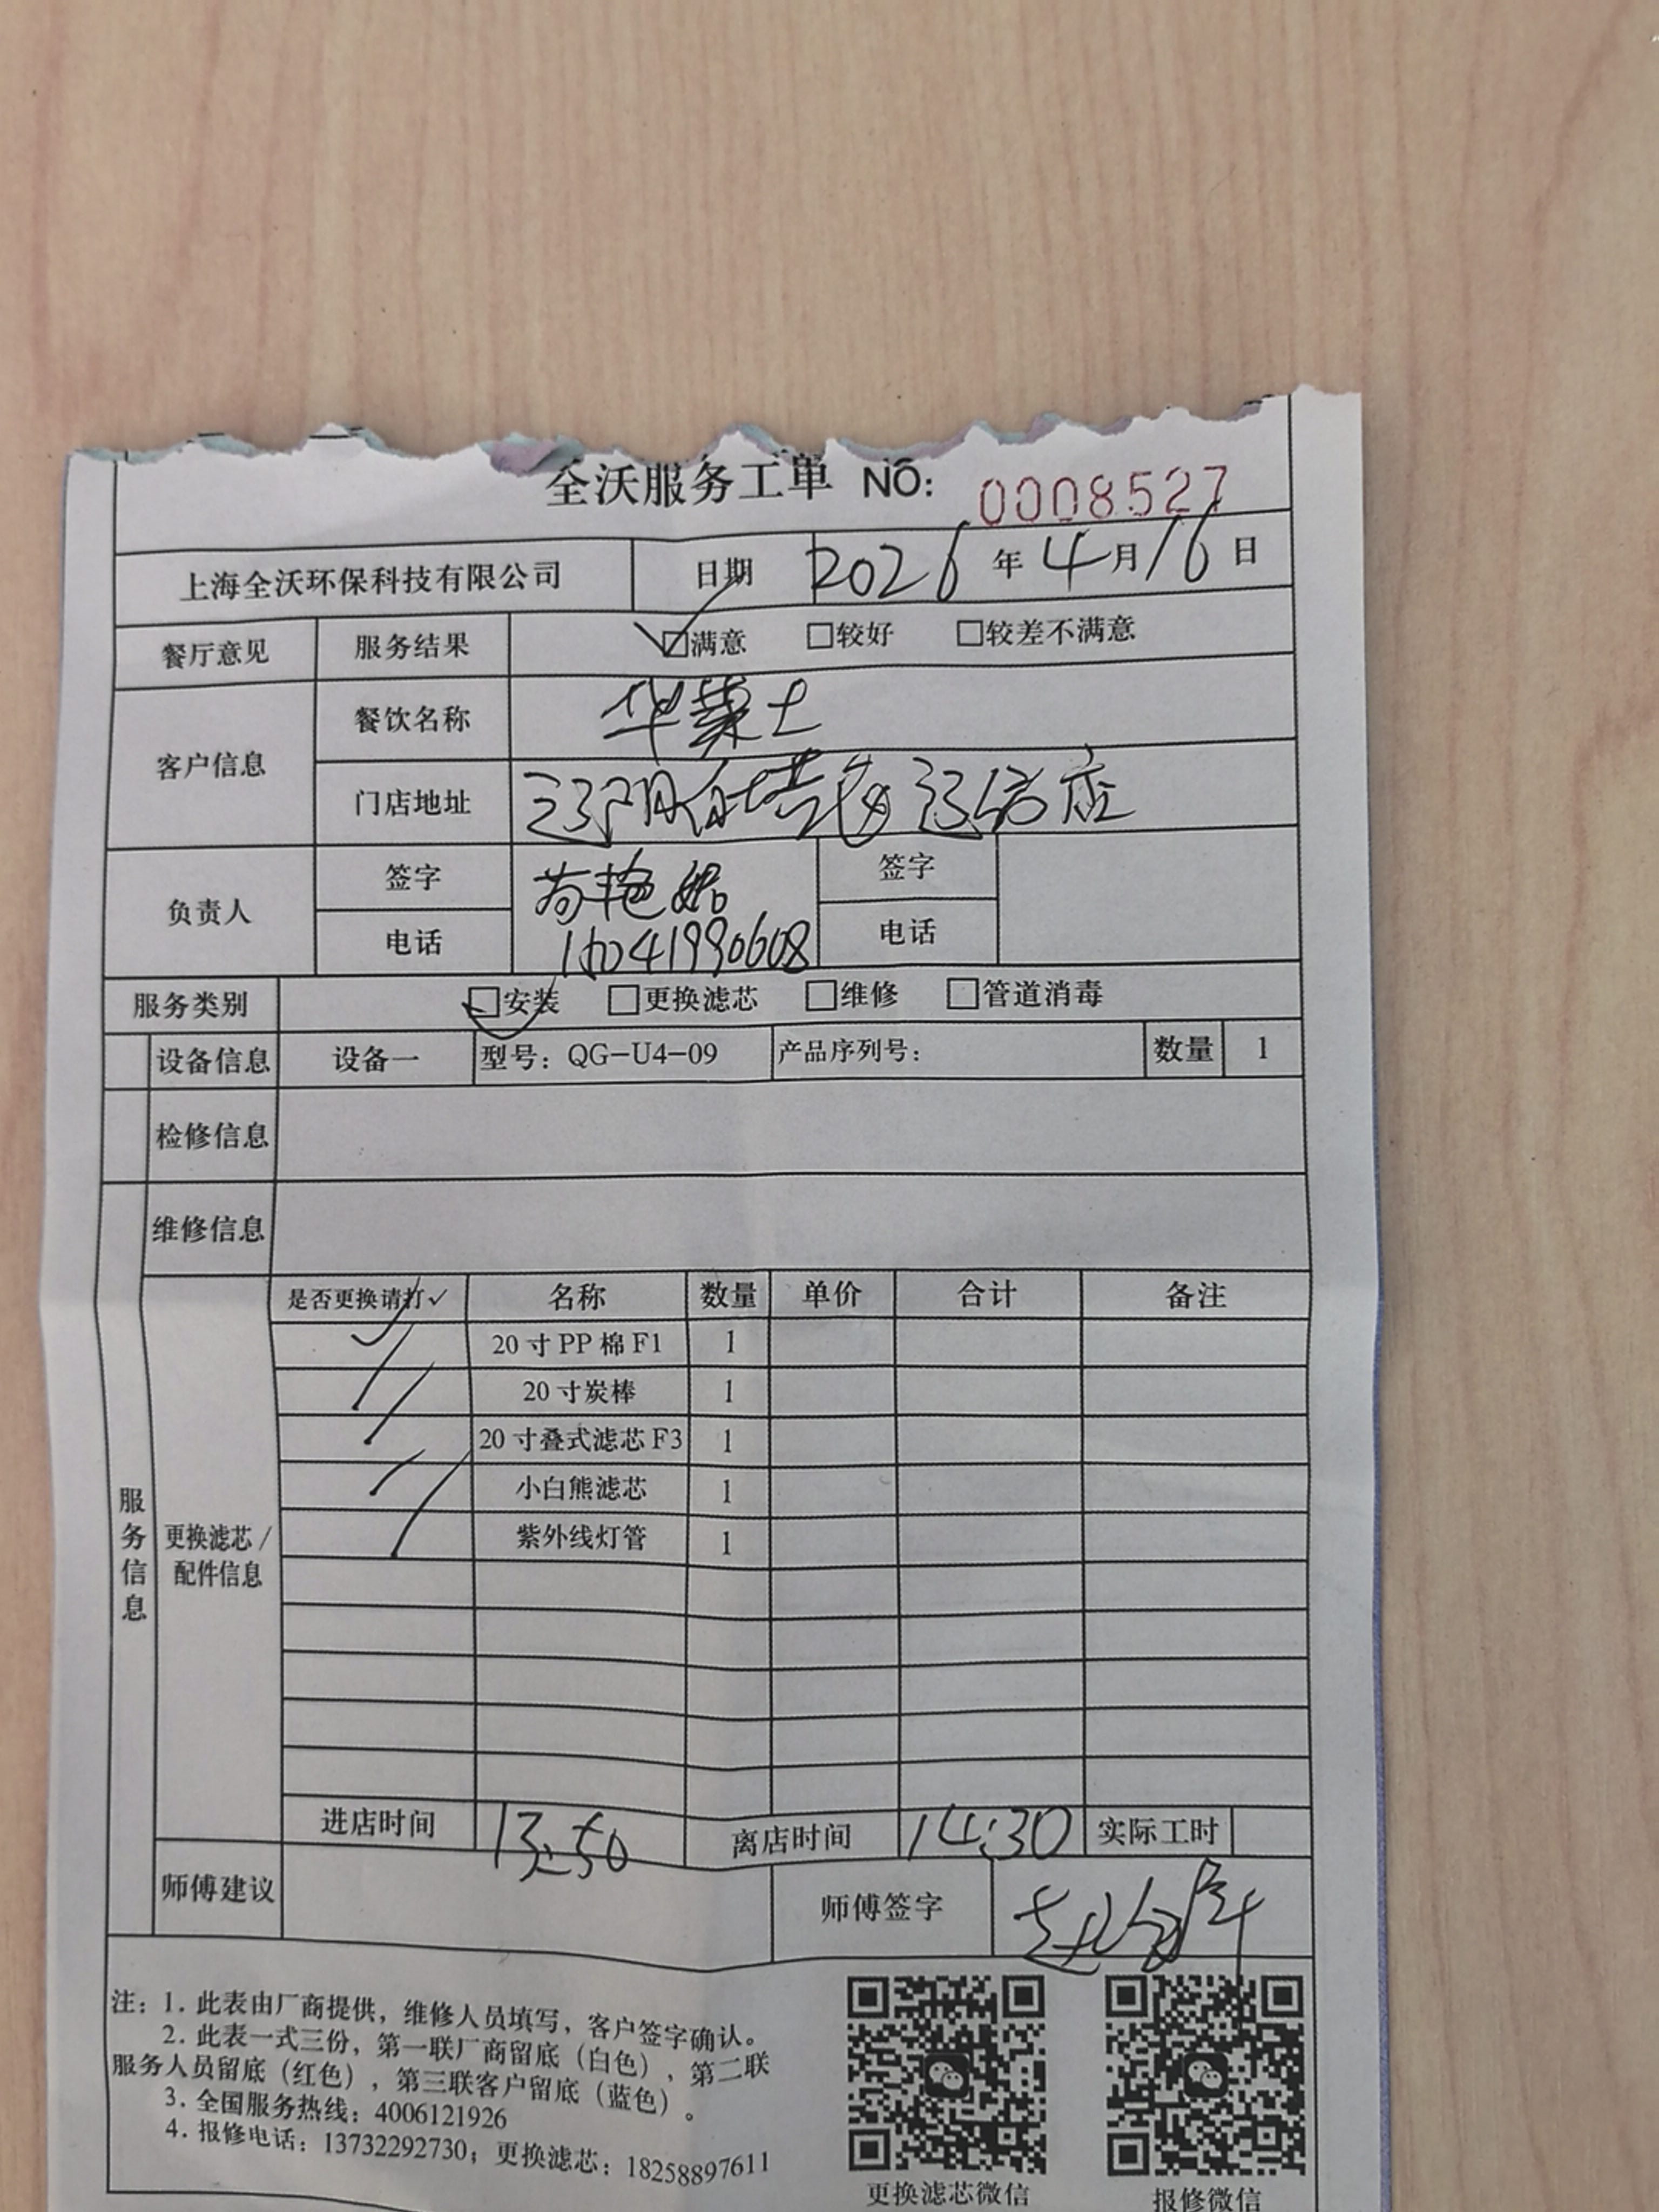 全沃服务工单 NO: 0008527
上海全沃环保科技有限公司 日期 2026 年 4 月 16 日
餐厅意见 服务结果 ☑满意 □较好 □较差不满意
客户信息 餐饮名称 华莱士
门店地址 辽阳白塔 店
负责人 签字 艳 签字
电话 电话
服务类别 ☑安装 □更换滤芯 □维修 □管道消毒
设备信息 设备一 型号：QG-U4-09 产品序列号： 数量 1
检修信息
维修信息
服务信息
更换滤芯/
配件信息
是否更换请打✓ 名称 数量 单价 合计 备注
✓ 20寸PP棉F1 1
✓ 20寸炭棒 1
✓ 20寸叠式滤芯F3 1
✓ 小白熊滤芯 1
✓ 紫外线灯管 1
进店时间 13:50 离店时间 14:30 实际工时
师傅建议 师傅签字 赵
注：1. 此表由厂商提供，维修人员填写，客户签字确认。
2. 此表一式三份，第一联厂商留底（白色），第二联
服务人员留底（红色），第三联客户留底（蓝色）。
3. 全国服务热线：4006121926
4. 报修电话：13732292730；更换滤芯：18258897611
更换滤芯微信 报修微信